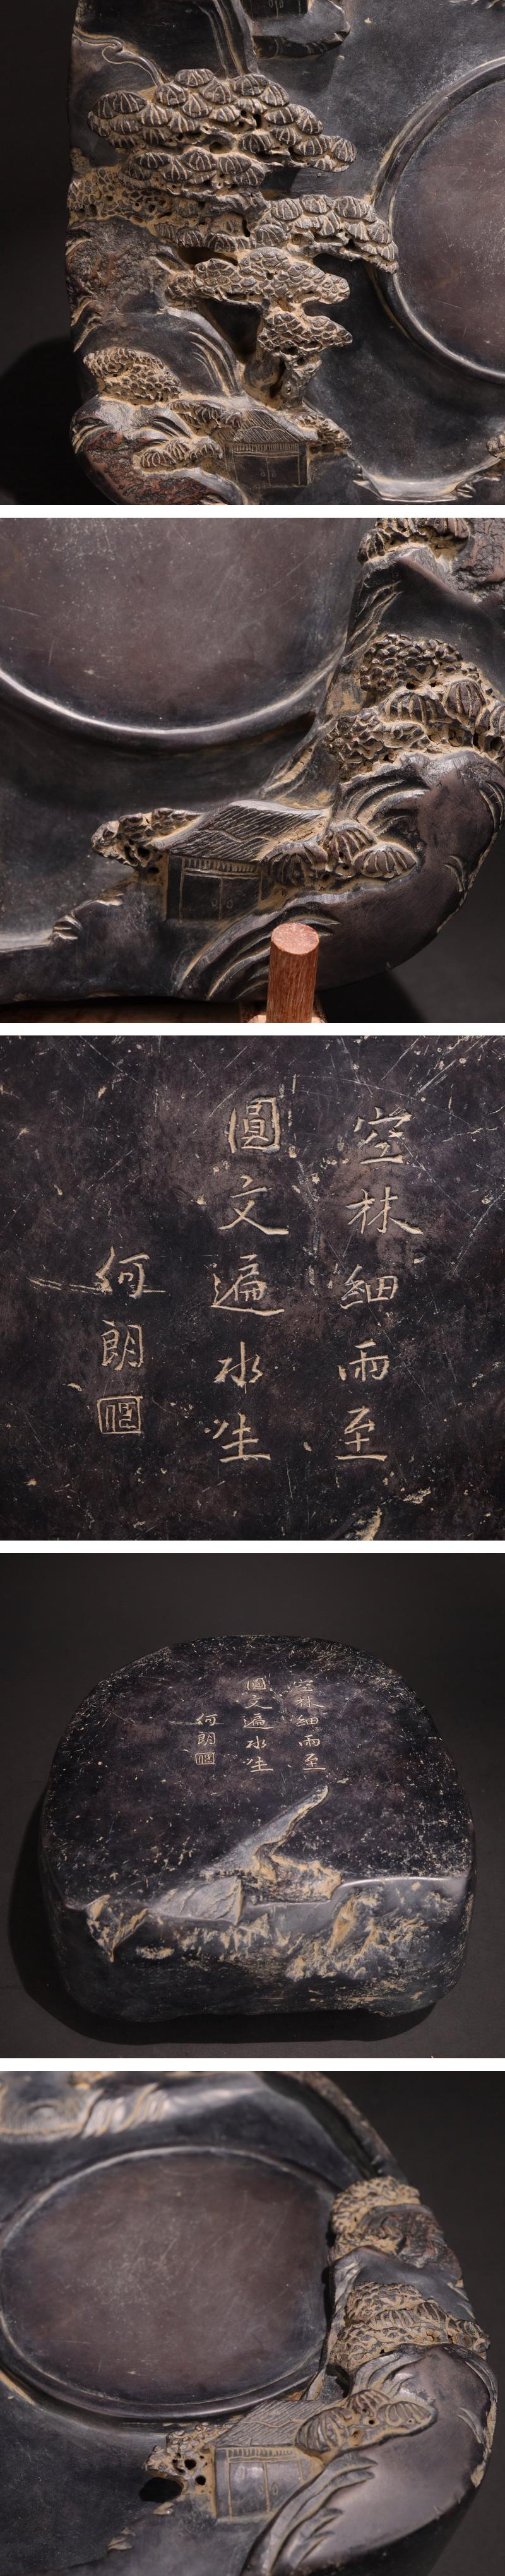 空林細雨至
圓文遍水生
何朗
空林細雨至
圓文遍水生
何朗